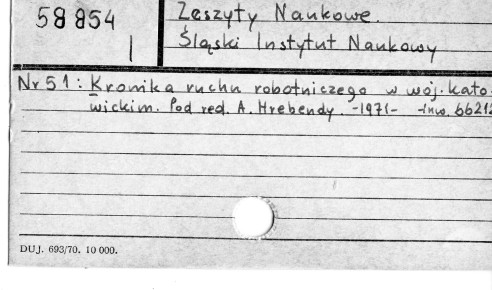 58 854
I
Zeszyty Naukowe.
Śląski Instytut Naukowy
Nr 51: Kronika ruchu robotniczego w woj. kato-
wickim. Pod red. A. Hrebendy. -1971- inw. 66212
DUJ. 693/70. 10 000.